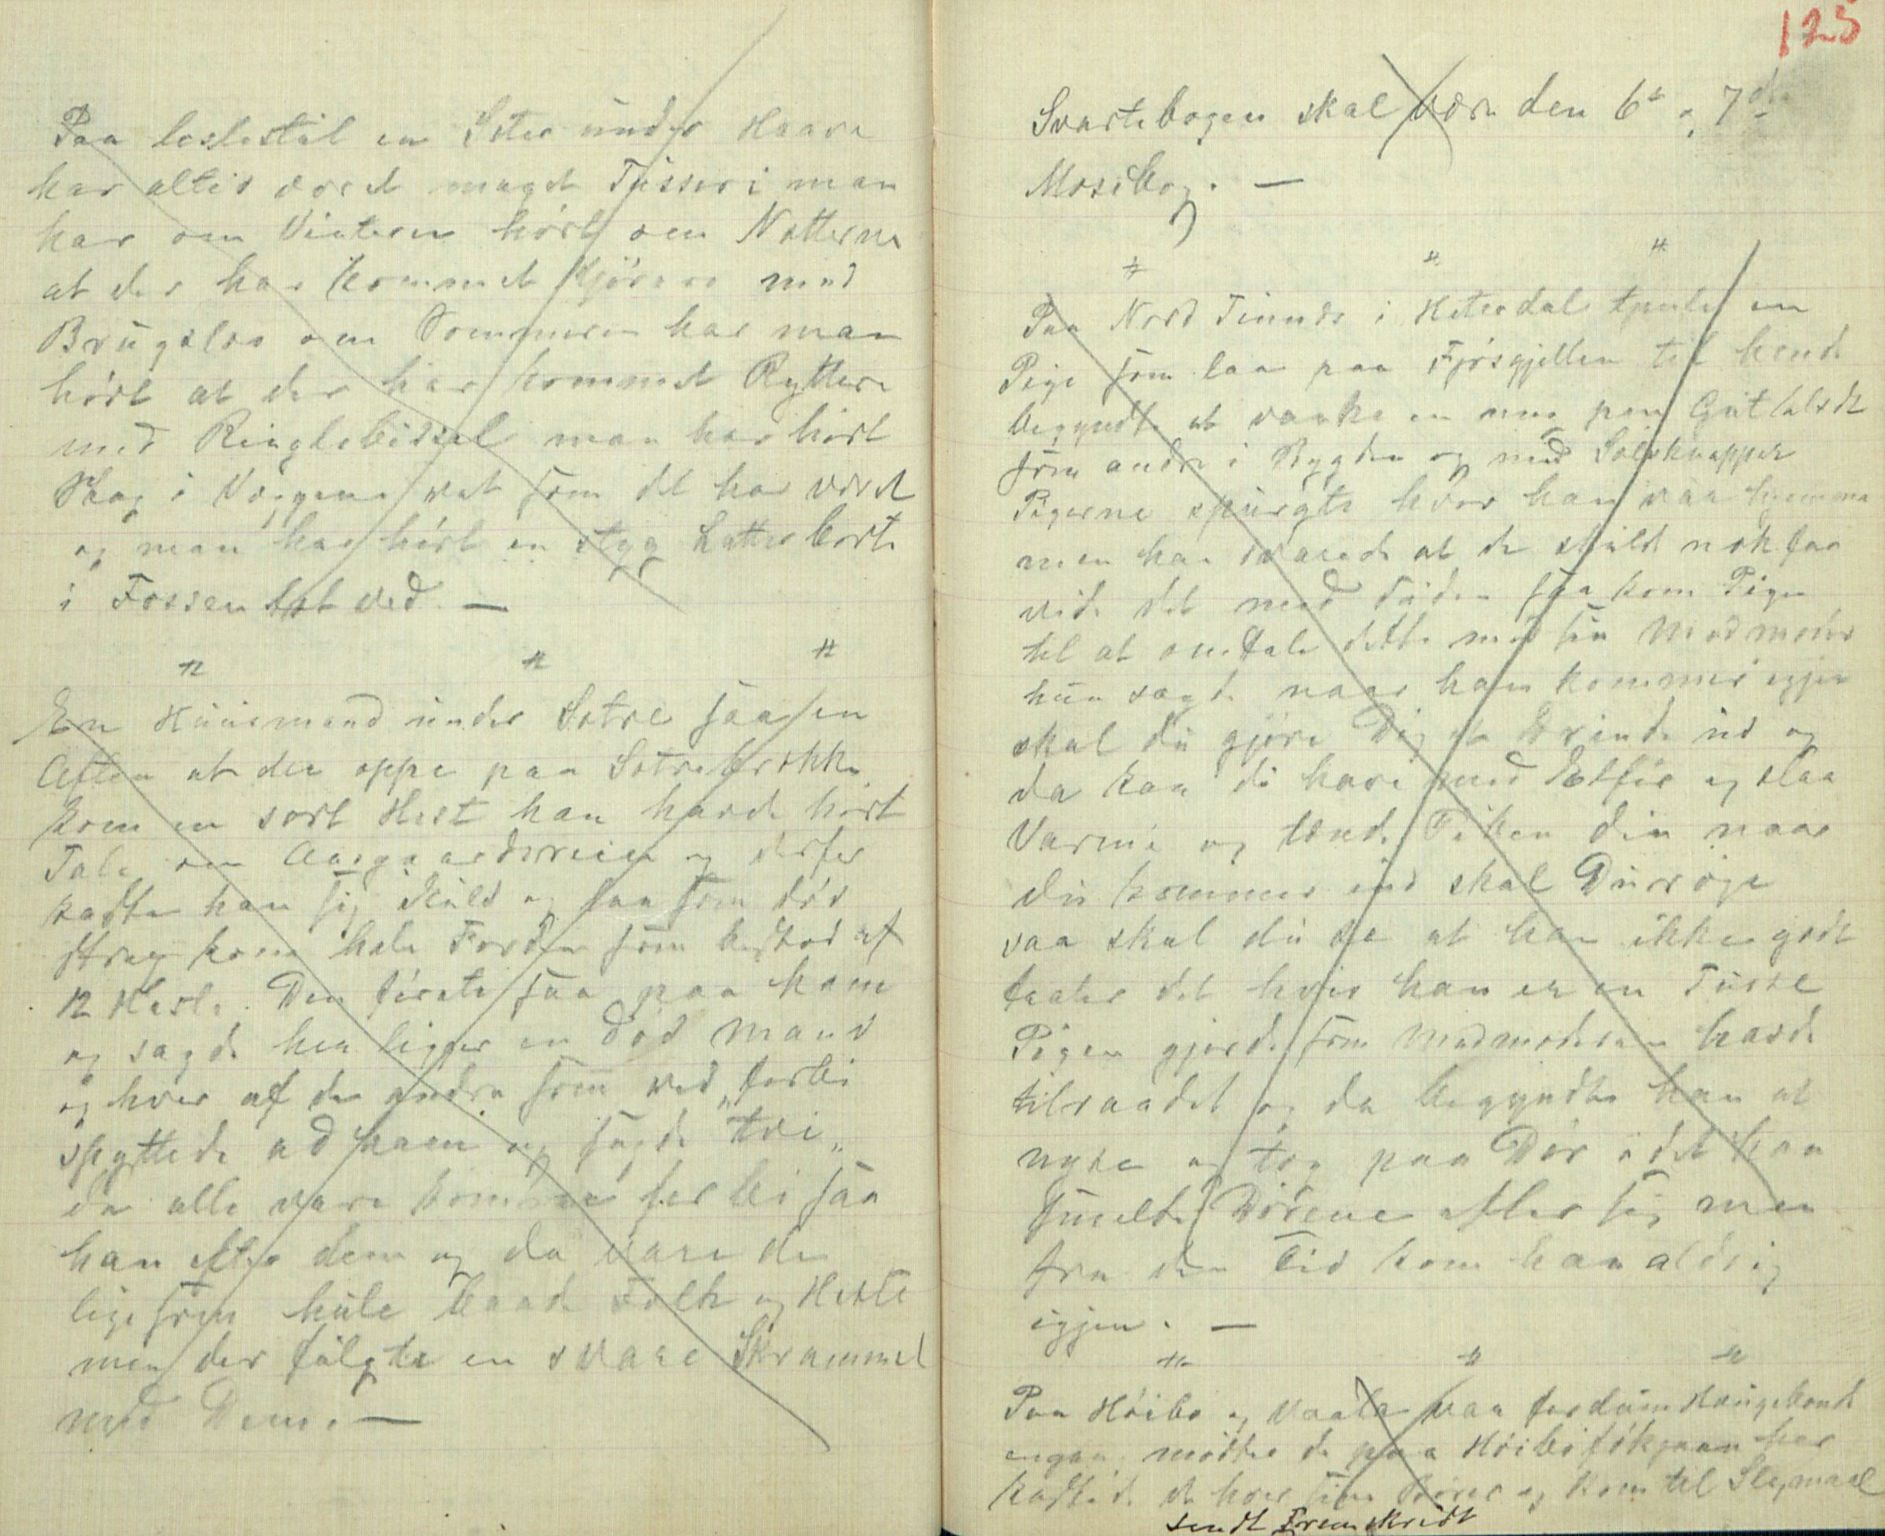 Paa leslestöl en Seter under Haave
har altid været meget Tusser i man
har om Vinteren hört om Nætterne
at der har kommet Kjörere med
Brugslæs om Sommeren har man
hört at der har kommet Ryttere
med Ringlebidsel man har hört
Hog i Væggene ret som det har været
og man har hört en styg Latter borte
i Fossen tæt ved. —
# # #
En Huusmand under Sotre saa en
Aften at der oppe paa Sotrebrekka
kom en sort Hest han havde hört
Tale om Aasgaardsreien og derfor
kaste han sig Kuld og saa som död
strag kom hele Ferden som bestod af
12 Heste. Den förste saa paa ham
og sagde her ligger en död Mand
og hver af de andre som red forbi
spyttede ad ham og sagde "tvi"
da alle vare komne forbi saa
han efter dem og da vare de
lige som hule baade Folk og Heste
men der fulgte en svare Skrammel
med Dem. —
125
Svartebogen skal være den 6te og 7de
Mosebog. —
# # #
Paa Nord Tinnes i Heterdal tjente en
Pige som laa paa Fjösgjellen til hende
begyndte at vanke en ung pen Gut klædt
som andre i Bygden og med Sölvknapper
Pigerne spurgte hvor han var hjemme
men han svarede at de skuld nok faa
vide det med Tiden saa kom Pigen
til at omtale dette med sin Madmoder
hun sagde naar han kommer igjen
skal du gjöre Dig et Erinde ud og
da kan du have med Eldför og slaa
Varme og tænde Piken din naar
du kommer ind skal Du röge
saa skal du se at han ikke godt
taaler det hvis han er en Tusse
Pigen gjorde som Madmoderen havde
tilraadet og da begyndte han at
nyse og tog paa Dör idet han
smeldte Dörene efter sig men
fra den Tid kom han aldrig
igjen. —
# # #
Paa Höibö og Vaale var fordum Haugebonde
engan mödtes de paa Höibö har
kastede de hver sine og kom til Slagsmaal
sendt Fremskridt